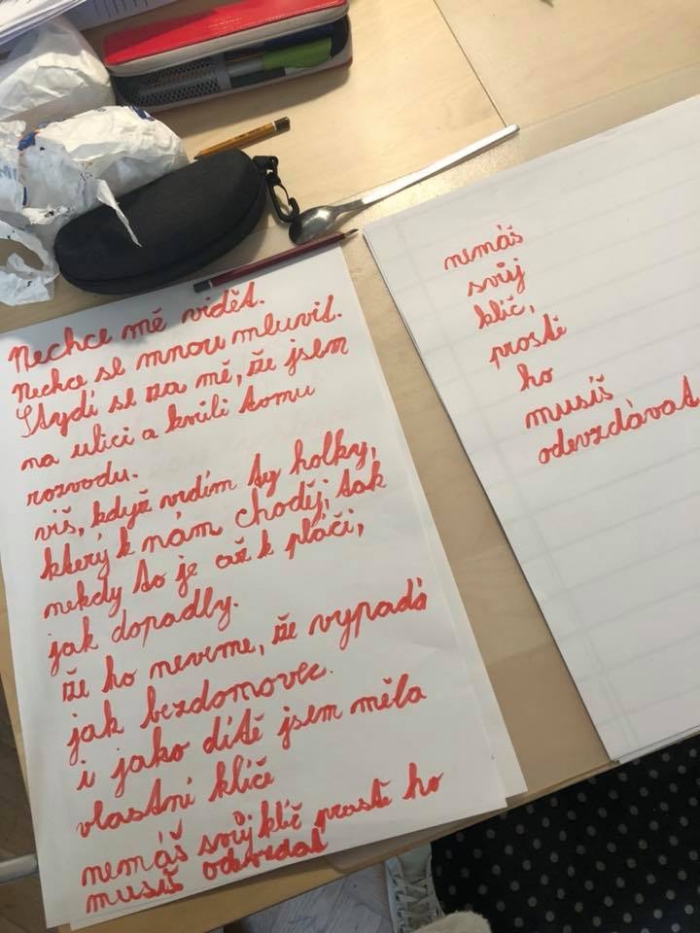 Nechce mě vidět.
Nechce se mnou mluvit.
Stydí se za mě, že jsem
na ulici a kvili tomu
rozvodu.
víš, když vidím ty holky,
který k nám choděj, tak
nekdy to je až k pláči,
jak dopadly.
že ho neveme, že vypadá
jak bezdomovec.
i jako dítě jsem měla
vlastní klíče
nemáš svůj klíč prostě ho
musíš odevzdat
nemáš
svůj
klíč,
prostě
ho
musíš
odevzdávat